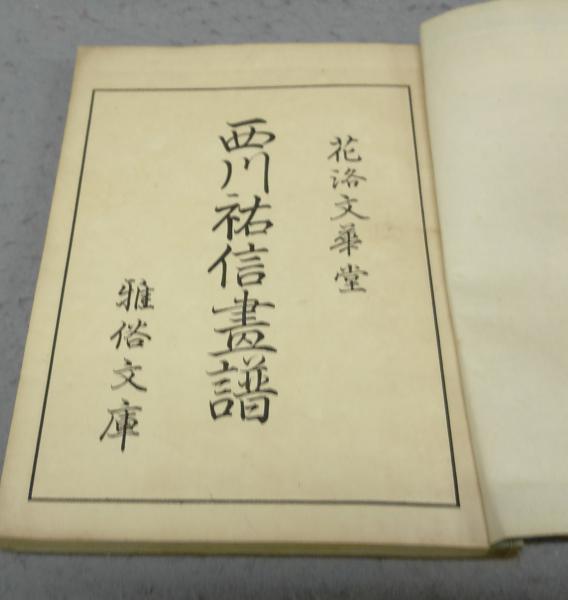 花洛文華堂
西川祐信畫譜
雅俗文庫